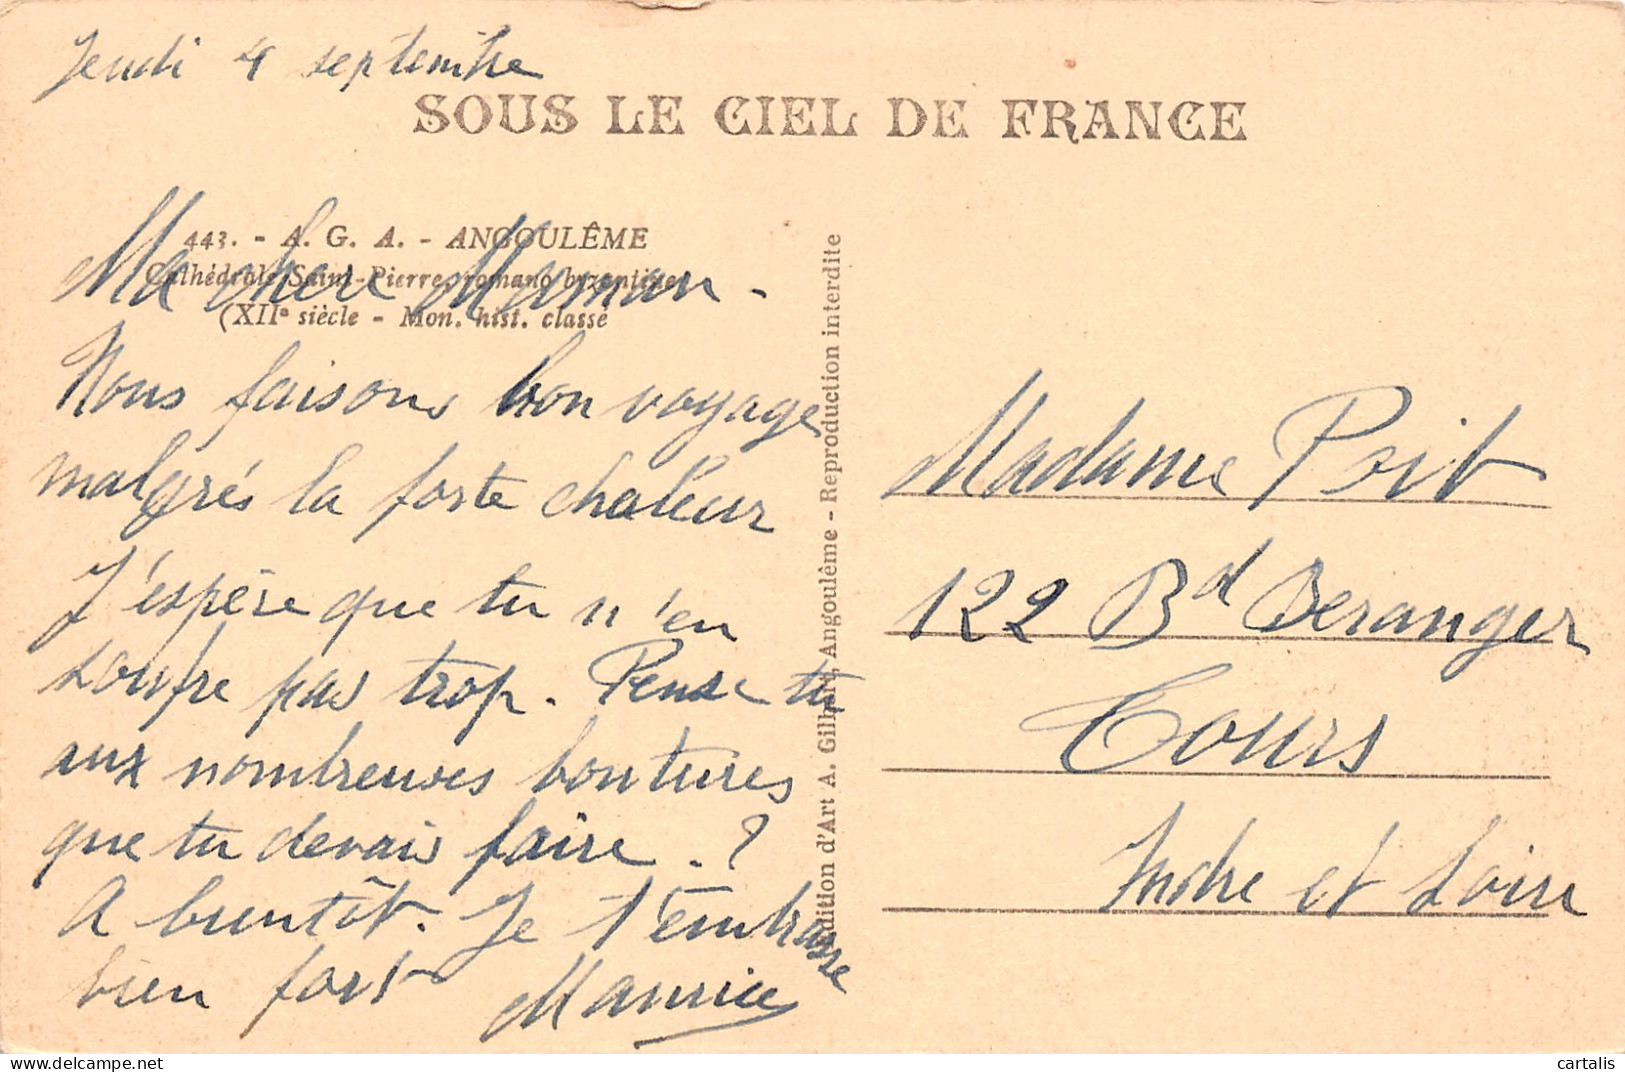 Jeudi 4 septembre
SOUS LE CIEL DE FRANCE
443. - A. G. A. - ANGOULÊME
Cathédrale Saint-Pierre, romano byzantine
(XIIe siècle - Mon. hist. classé
Ma chere Maman -
Nous faisons bon voyage
malgrés la forte chaleur
J'espère que tu n'en
soufre pas trop. Pense tu
aux nombreuses boutures
que tu devais faire. ?
A bientôt. Je t'Embrasse
bien fort
Maurice
Edition d'Art A. Gilbert, Angoulême - Reproduction interdite
Madame
122 Bd Beranger
Tours
Indre et Loire
cartalis